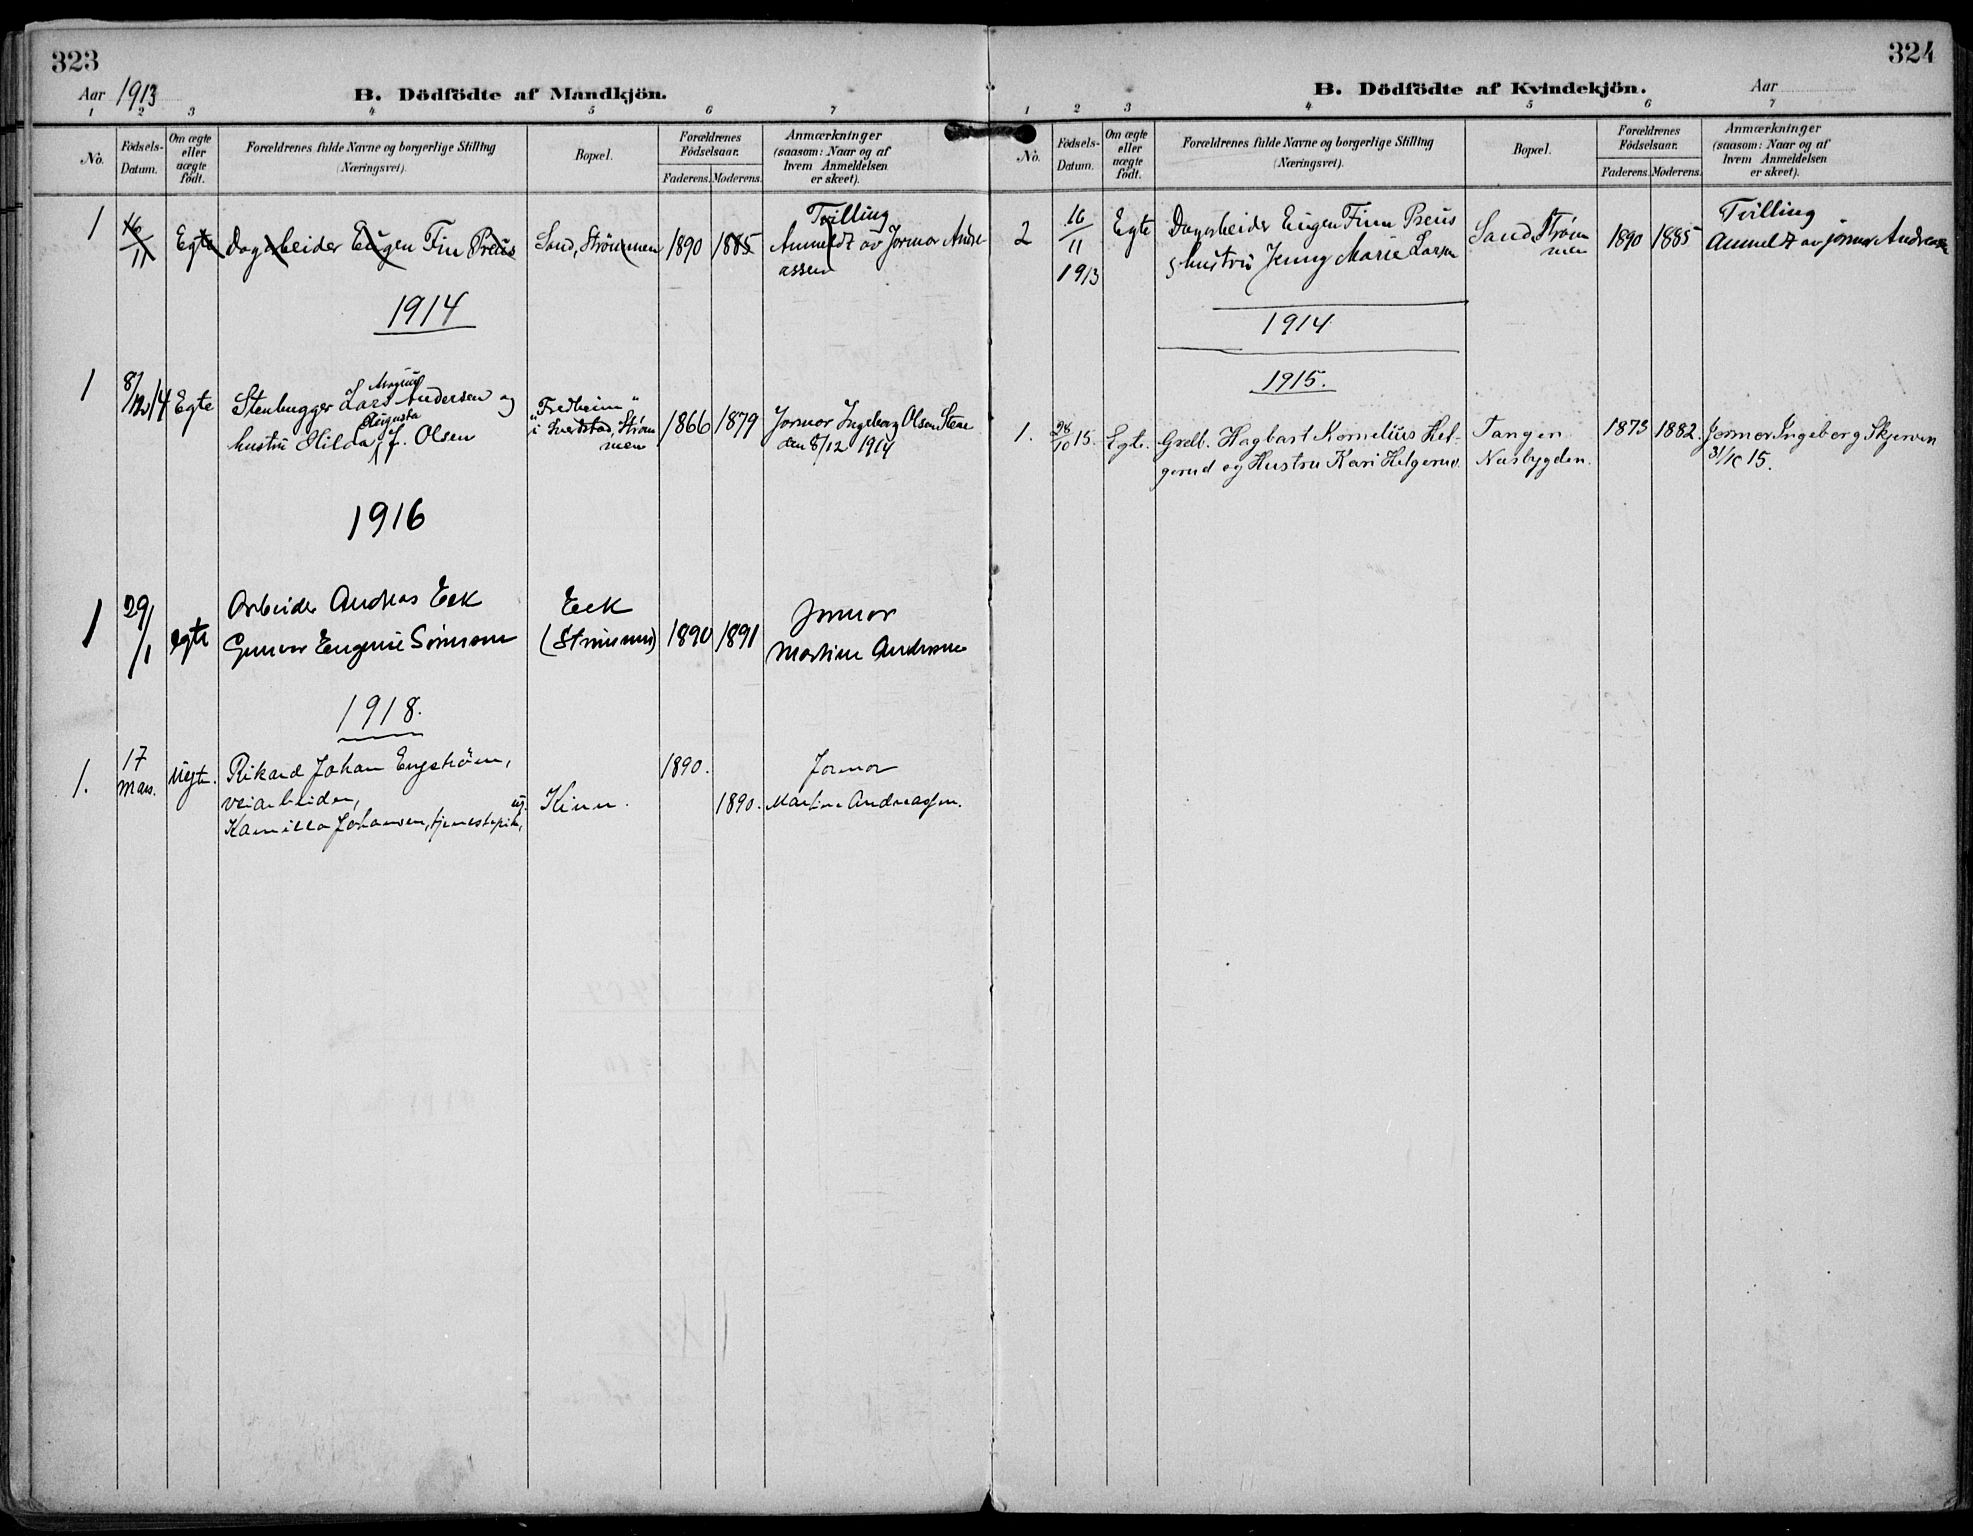 323
Aar 1913
B. Dödfödte af Mandkjön.
1 2 3 4 5 6 7
No.
Födsels-Datum.
Om ægte eller uægte födt.
Forældrenes fulde Navne og borgerlige Stilling
(Næringsvei).
Bopæl.
Forældrenes Födselsaar.
Faderens. Moderens.
Anmærkninger
(saasom: Naar og af
hvem Anmeldelsen
er skeet).
1 16/11 Egte Dagarbeider Eugen Fin Preus Sand, Strömmen 1890 1885 Tvilling
Anmeldt av Jormor Andre-
assen
1914
1 8/12 14 Egte Stenhugger Lars Magnus Andersen og
hustru Hilda Augusta f. Olsen
"Fredheim"
i Sverdstad, Ström
men
1866 1879 Jormor Ingeborg Olsen Stene
den 8/12 1914
1916
1 29/1 egte Arbeider Andreas Eek
Gunvor Eugenie Simensen
Eek
(Strömmen)
1890 1891 Jormor
Martine Andreassen
1918.
1. 17 mars. Uegte. Rikard Johan Engström,
veiarbeider, og
Kamilla Johansen, tjenestepike,
Kinn.
1890. 1890. Jormor
Martine Andreassen.
324
B. Dödfödte af Kvindekjön.
Aar
1 2 3 4 5 6 7
No.
Födsels-Datum.
Om ægte eller uægte födt.
Forældrenes fulde Navne og borgerlige Stilling
(Næringsvei).
Bopæl.
Forældrenes Födselsaar.
Faderens. Moderens.
Anmærkninger
(saasom: Naar og af
hvem Anmeldelsen
er skeet).
2 16/11 1913 Egte Dagarbeider Eugen Finn Preus
g hustru Jenny Marie Larsen
Sand, Ström
men
1890 1885 Tvilling
Anmeldt av jormor Andreassen
1914
1915.
1. 28/10 15. Egte. Grdb. Hagbart Kornelius Hel-
gerud og Hustru Kari Helgerud.
Tangen
Nesbygden.
1873 1882. Jormor Ingeborg Skjerven
31/10 15.